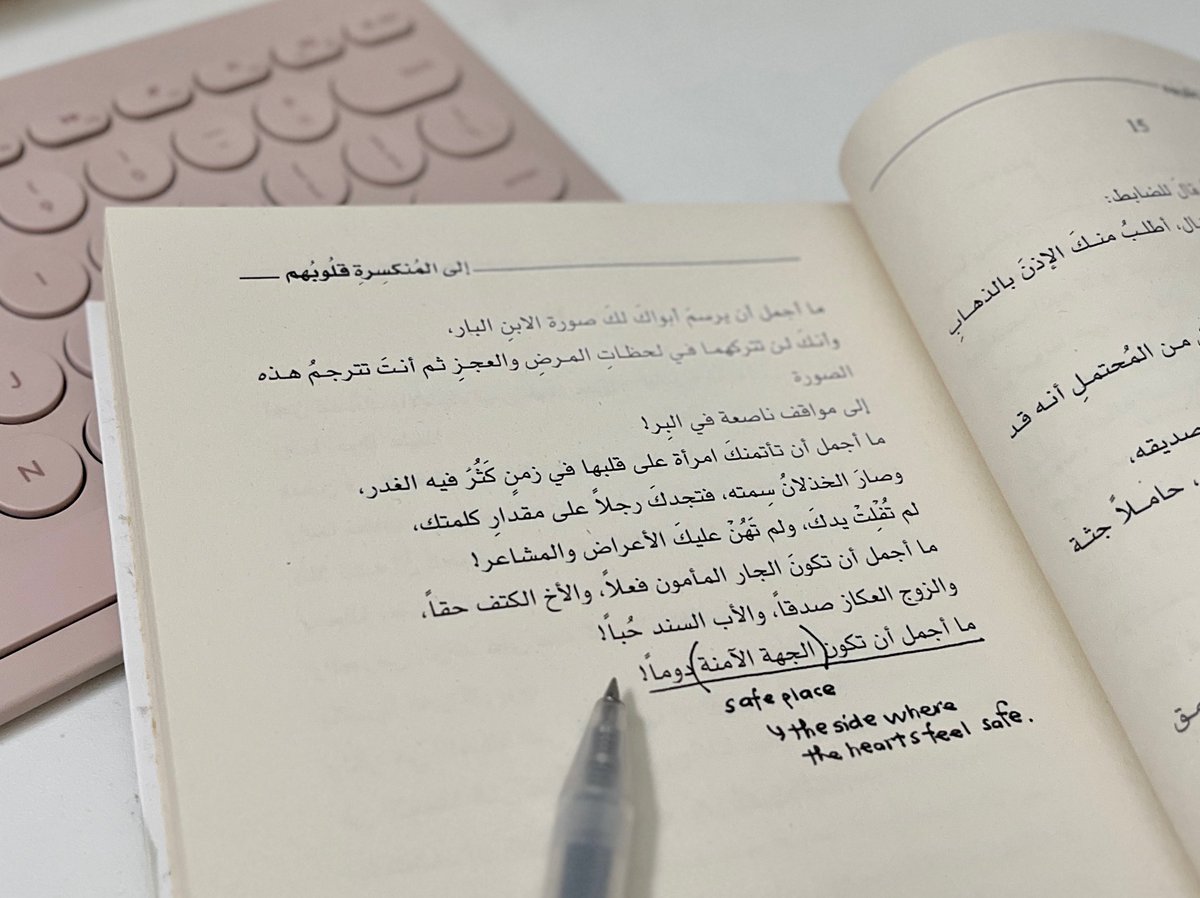 إلى المُنكسِرةِ قلُوبُهم
ما أجمل أن يرسمَ أبواكَ لكَ صورة الابنِ البار،
وأنكَ لن تتركهما في لحظاتِ المرضِ والعجزِ ثم أنتَ تترجمُ هذه
الصورة
إلى مواقف ناصعة في البِر!
ما أجمل أن تأتمنكَ امرأة على قلبها في زمنٍ كَثُرَ فيه الغدر،
وصارَ الخذلانُ سِمته، فتجدكَ رجلاً على مقدارِ كلمتك،
لم تُفْلِتْ يدكَ، ولم تَهُنْ عليكَ الأعراض والمشاعر!
ما أجمل أن تكونَ الجار المأمون فعلاً، والأخ الكتف حقاً،
والزوج العكاز صدقاً، والأب السند حُباً!
ما أجمل أن تكون (الجهة الآمنة) دوماً!
safe place
↳ the side where
the hearts feel safe.
15
قالَ للضابط:
أطلبُ منكَ الإذنَ بالذهابِ
من المُحتملِ أنه قد
صديقه،
حاملاً جثة
J
N